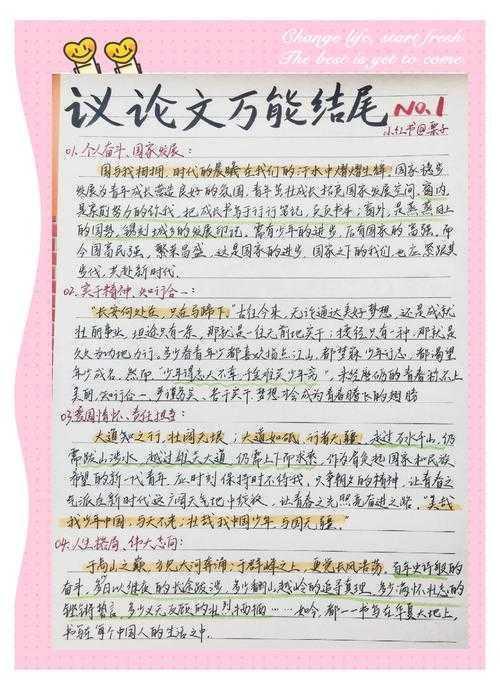 Change life, start fresh
The best is yet to come
议论文万能结尾 No.1
小红书@栗子
01. 个人奋斗、国家发展:
国与我相拥,时代的晨曦在我们的汗水中熠熠生辉,国家稳步
发展为青年成长营造良好的氛围,青年茁壮成长拓宽国家发展空间。窗内,
是亲们努力的你我,把成长书写于行行笔记、页页书本;窗外,是蒸蒸日上
的国势,镌刻城乡的发展印记。需有少年的进步,后有国家的富强,而
今国富民强,繁荣昌盛,这是国家的进步,国家之下的我们,也应紧跟其
步伐,共赴新时代。
02. 实干精神、知行合一:
“长安何处在,只在马蹄下。”古往今来,无论通达美好梦想,还是成就
壮丽事业,坦途只有一条,那就是一往无前地实干;捷径只有一种,那就是
久久为功地力行。多少看青年少都喜欢指点江山,都梦麻少年们志,都渴望
年少成名,然而“少年得志人不幸,千金难买少年穷”,未经磨砺的青春衬不上
美丽,知行合一,步谨务实,苦于实干,梦想才会成为青春腾飞的翅膀
03. 爱国情怀、责任担当:
大道如之行,壮阔无垠;大道如砥,行者无疆。走过万水千山,仍
需跋山涉水,越过雄关大道,仍需上下而求索。作为肩负起国家和民族
希望的新一代青年,应时刻保持时不待我、只争朝夕的精神,让青春之
气派在新时代这广阔天气地中绽放,让青春之光照亮奋进之路。“美哉
我少年中国,与天不老,壮哉我中国少年,与国无疆。”
04. 人生格局、伟大志向:
于高山之巅,方见大河奔涌;于群峰之上,更觉长风浩荡。百年史诗般的
奋斗,多日以继夜的长途跋涉,多少翻山越岭的追寻真理,多少满怀壮志的
铿锵誓言,多少义无反顾的壮烈牺牲……如今,都一一书写在华夏大地上,
书写在每个中国人的生活之中。